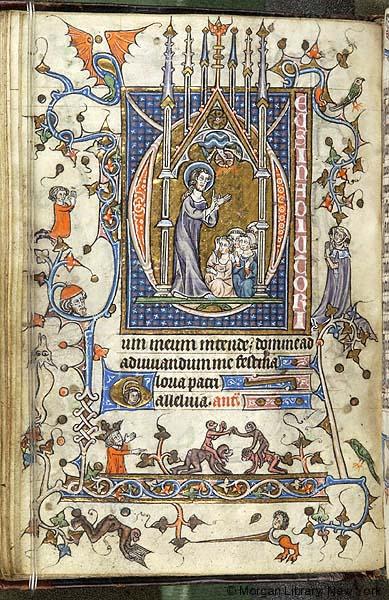 EUSINADIUTORI
um meum intende; domine ad
adiuuandum me festina
Gloria patri
alleluia. ant.
© Morgan Library, New York